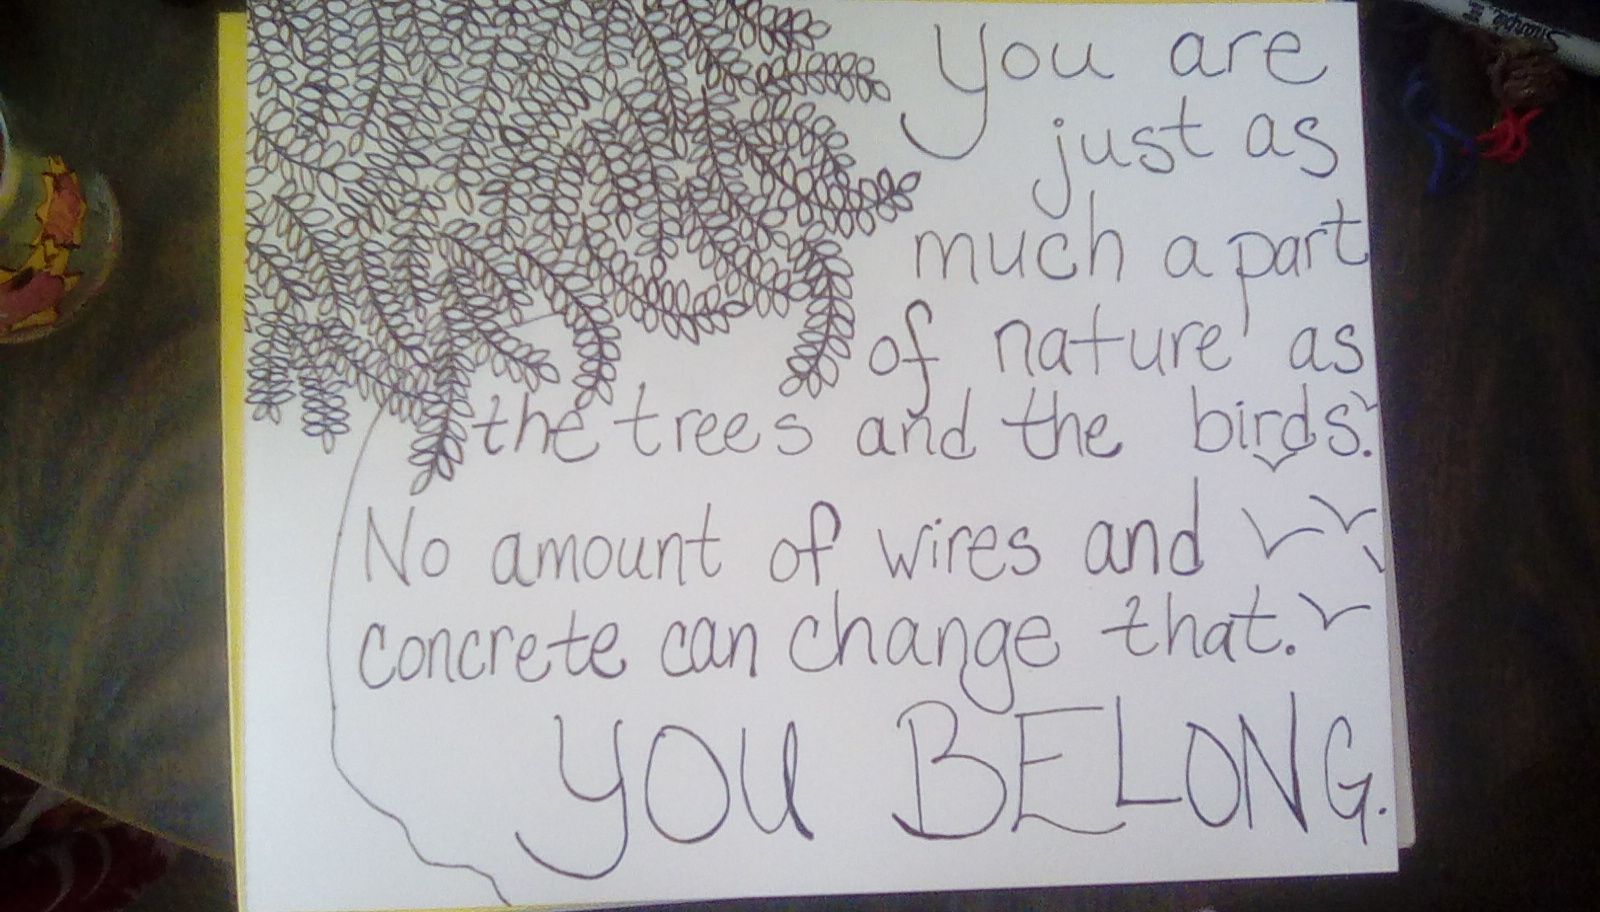 You are
just as
much a part
of nature as
the trees and the birds.
No amount of wires and
concrete can change that.
YOU BELONG.
Sharpie